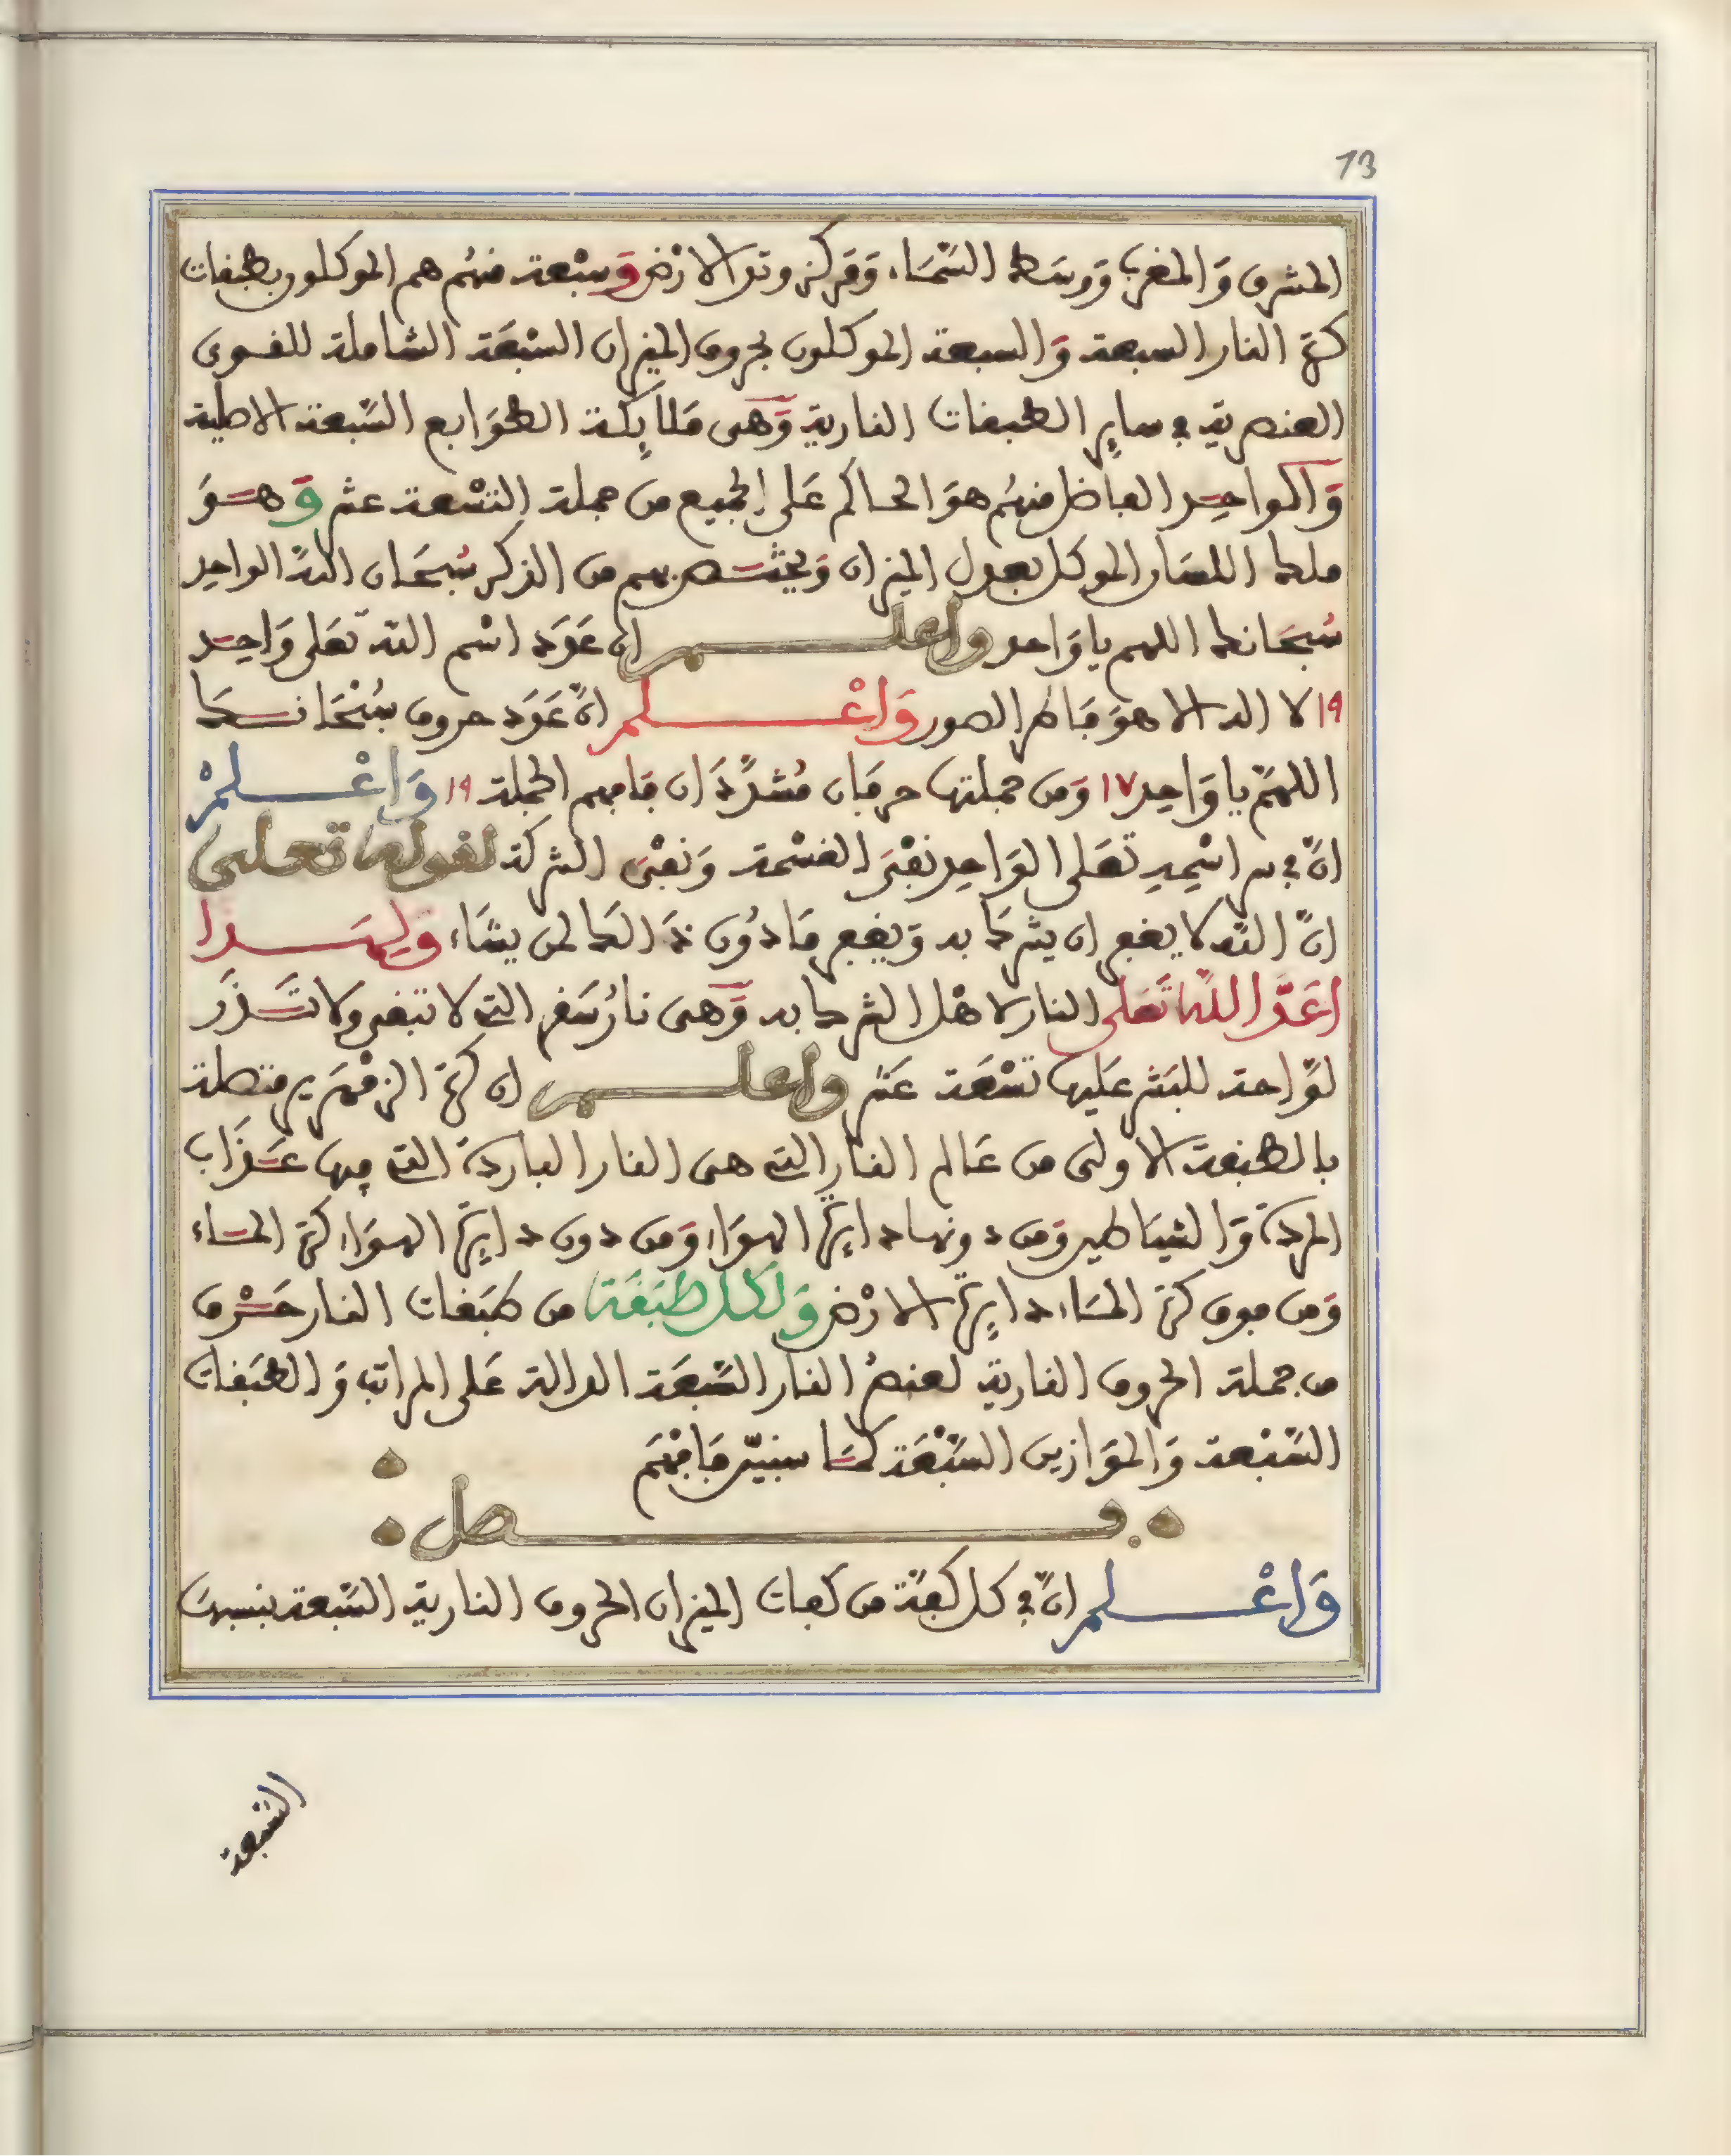 73
المشرق وَالمغرب وَوسَط السَّمَاء وَمَركز وتد الارْض وَسبْعة منهُم هم الموكلون بطبقات
كرة النار السبعة وَالسبعة الموكلون بحروف الميزان السَّبْعَة الشاملة للقوى
العنصرية في سايٍر الطبقات النارية وَهى مَلايٍكة الطوَابع السَّبعة الاصلية
وَالواحِد الفاضل منهُم هوَ الحاكم عَلى الجميع من جملة التسْعة عشر وَهوَ
ملك اللسَان الموكل بعدل الميزان وَيختص بهم من الذكر سُبحَان اللهُ الواحِد
سُبحَانك اللهم يا وَاحد واعلم ان عَدَد اسْم الله تعَلى وَاحِد
١٩ لا اله الا هوَ فَاطر الصور وَاعْلم انّ عَدَد حروف سُبْحَانك
اللهمّ يا وَاحِد ١٧ وَمن جملتها حرفَان مُشدَّدَان فَافهم الجملة ١٩ وَاعْلمْ
انّ في سر اسْمِهِ تعَلى الوَاحِد نفْىَ القسْمة وَنفْىَ الشركة لقوله تعلى
انَّ اللَّه لا يغفر ان يشرك به وَيغفر مَا دُون ذَالك لمن يشَاء وَلِهَذا
اعَدَّ اللهُ تَعَلى النار لاهْل الشرك به وَهى نارُ سَقر التي لا تبقى ولا تَذَر
لوَّاحة للبَشر عَليها تسْعَة عَشر واعلم ان كرة الزمْهَرير متصلة
بالطبقة الاولى من عَالم النار التي هى النار الباردة التي فيها عَذَاب
المردة وَالشيَاطين وَمن دونها دايٍرة الهوَاء وَمن دون دايٍرة الهوَاء كرة المَاء
وَمن فوق كرة المَاء دايٍرة الارْض وَلكل طبَقَة من طبَقات النار حَرْف
من جملة الحروف النارية لعنصُر النار السَّبعَة الدالة عَلى المراتب وَالطبَقات
السَّبْعة وَالموَازين السَّبْعَة كمَا سنبيّن فَافْهَم
فصل
وَاعْلم انّ في كل كفة من كفات الميزان الحروف النارية السَّبعة بنسبها
السَّبعة